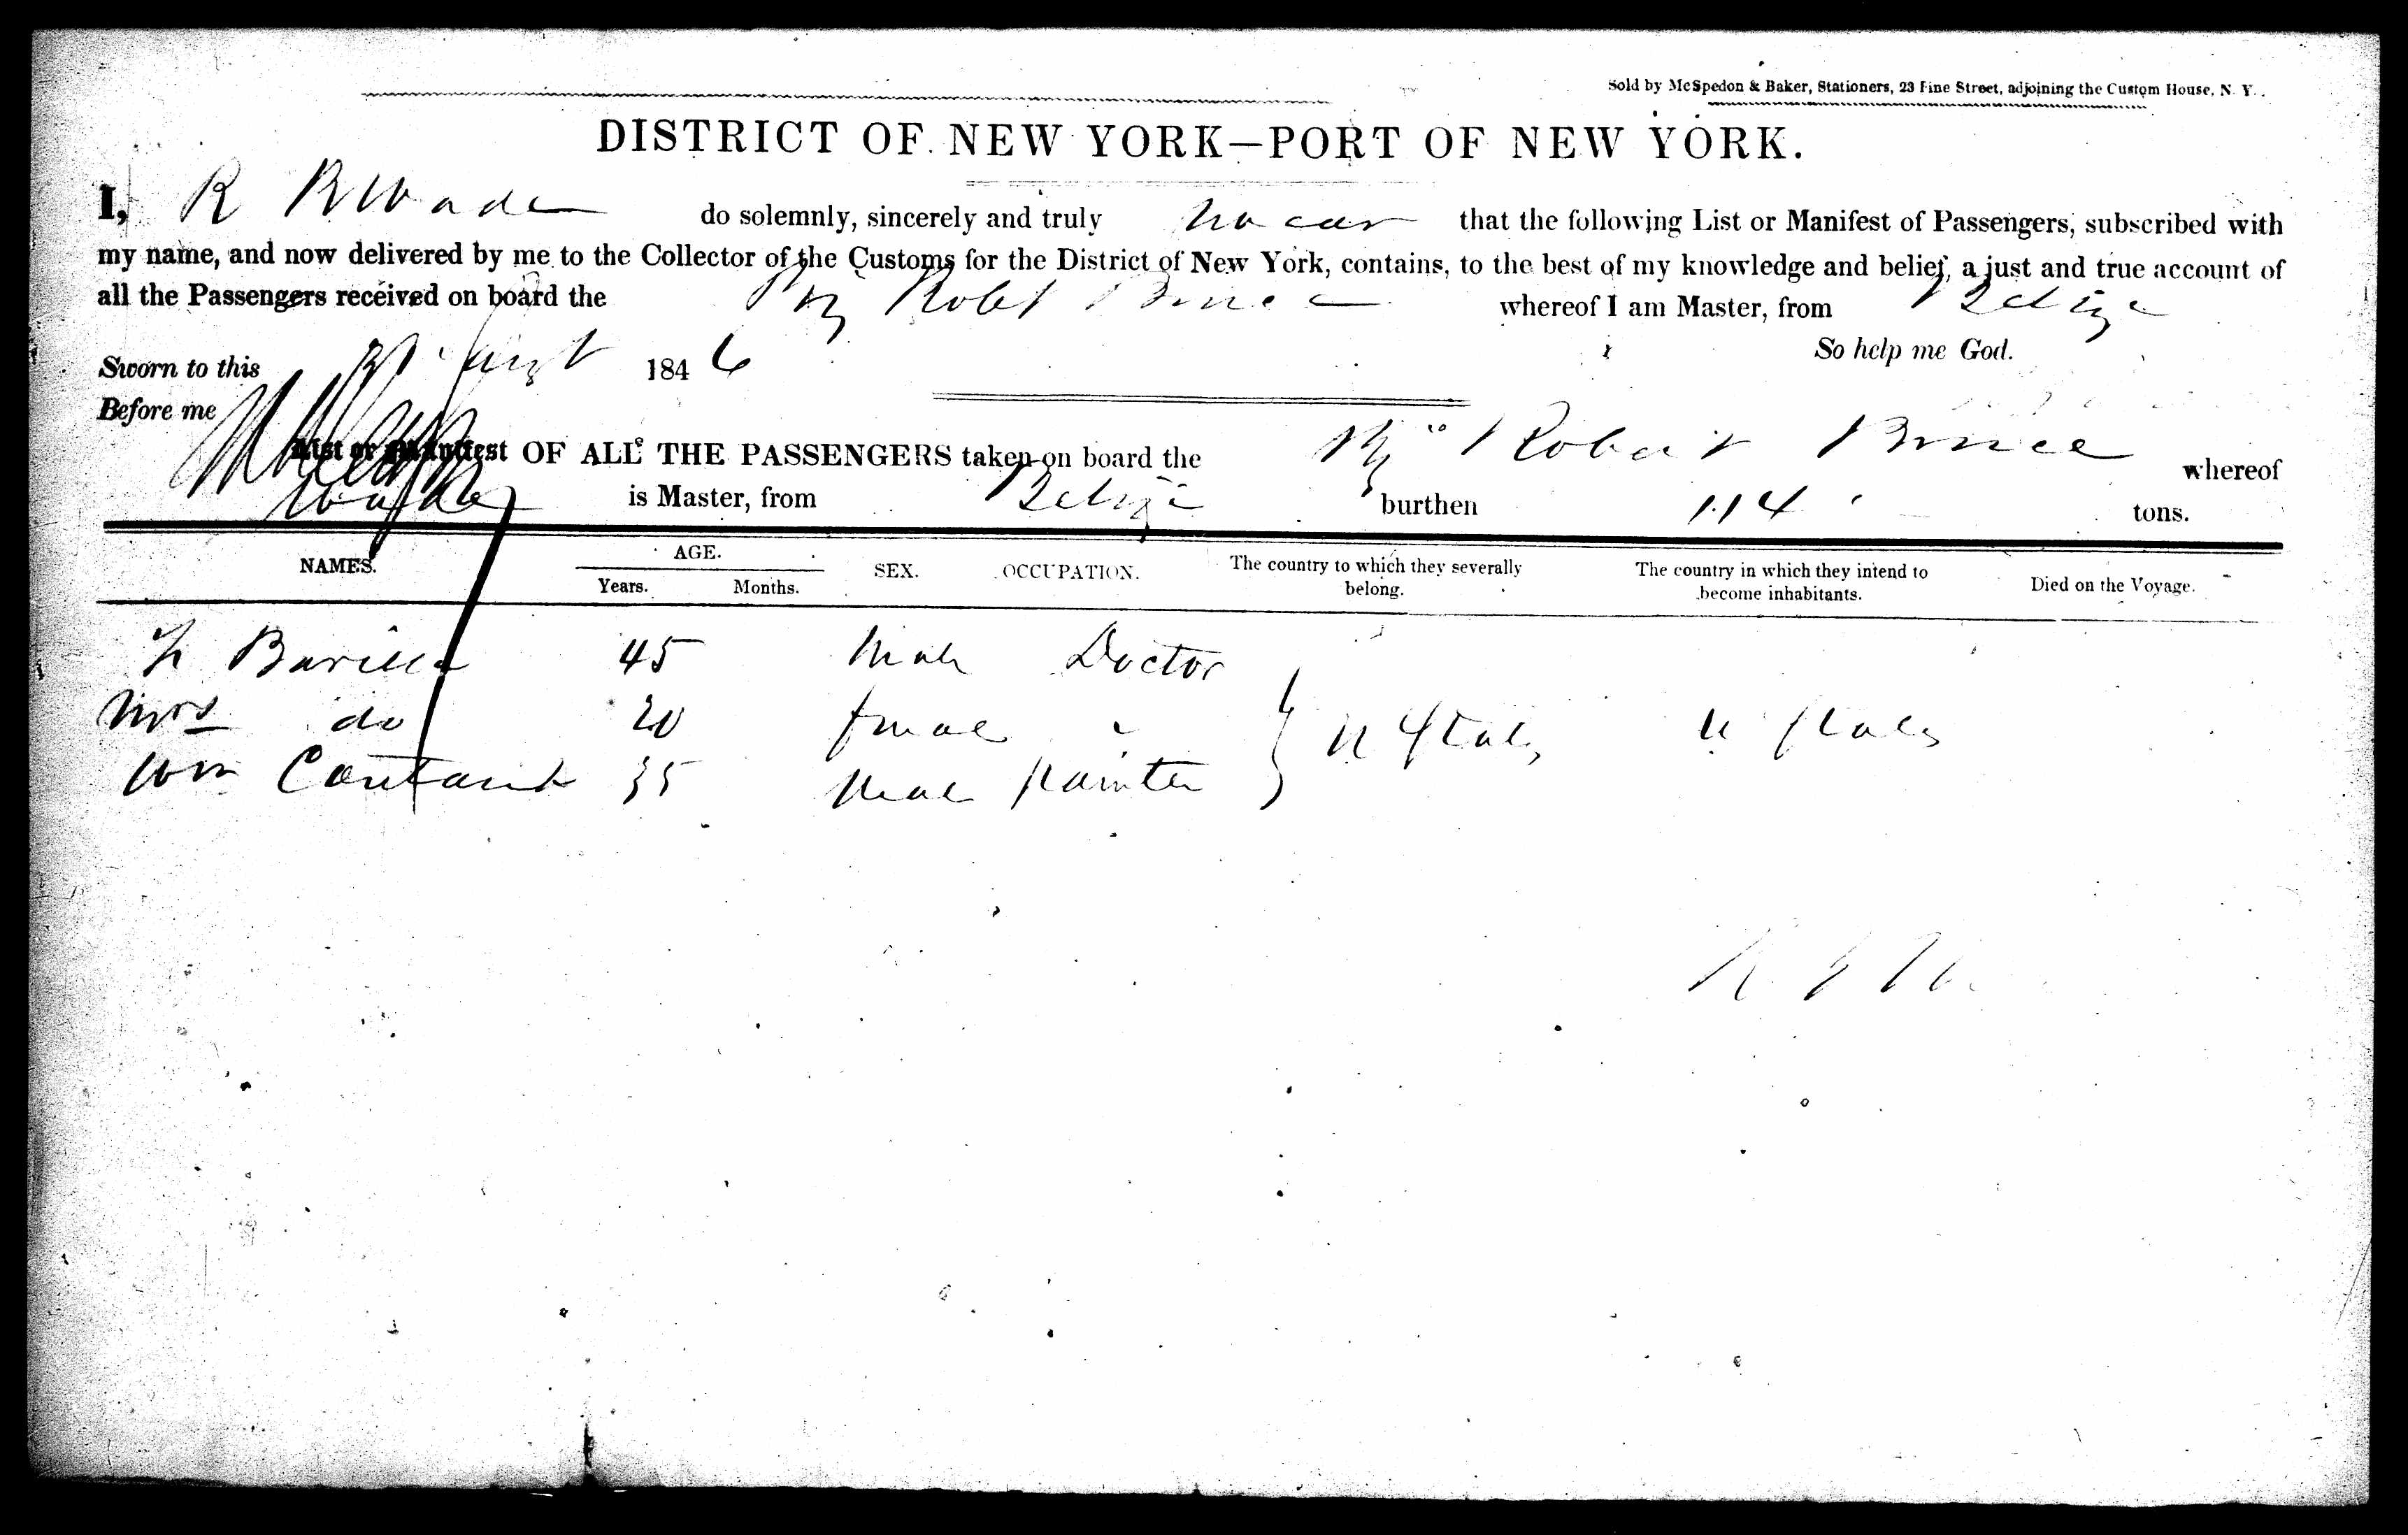 Sold by McSpedon & Baker, Stationers, 23 Pine Street, adjoining the Custom House, N. Y.
DISTRICT OF NEW YORK—PORT OF NEW YORK.
I, R B Wade do solemnly, sincerely and truly swear that the following List or Manifest of Passengers, subscribed with
my name, and now delivered by me to the Collector of the Customs for the District of New York, contains, to the best of my knowledge and belief, a just and true account of
all the Passengers received on board the Brig Robt Bruce whereof I am Master, from Belize
So help me God.
Sworn to this 1846
Before me
List or Manifest OF ALL THE PASSENGERS taken on board the Brig Robert Bruce whereof
is Master, from Belize burthen 114 tons.
NAMES. AGE. SEX. OCCUPATION. The country to which they severally belong. The country in which they intend to become inhabitants. Died on the Voyage.
Years. Months.
45 Male Doctor
Mrs do 20 Female
Wm Contant 35 Male Painter U States U States